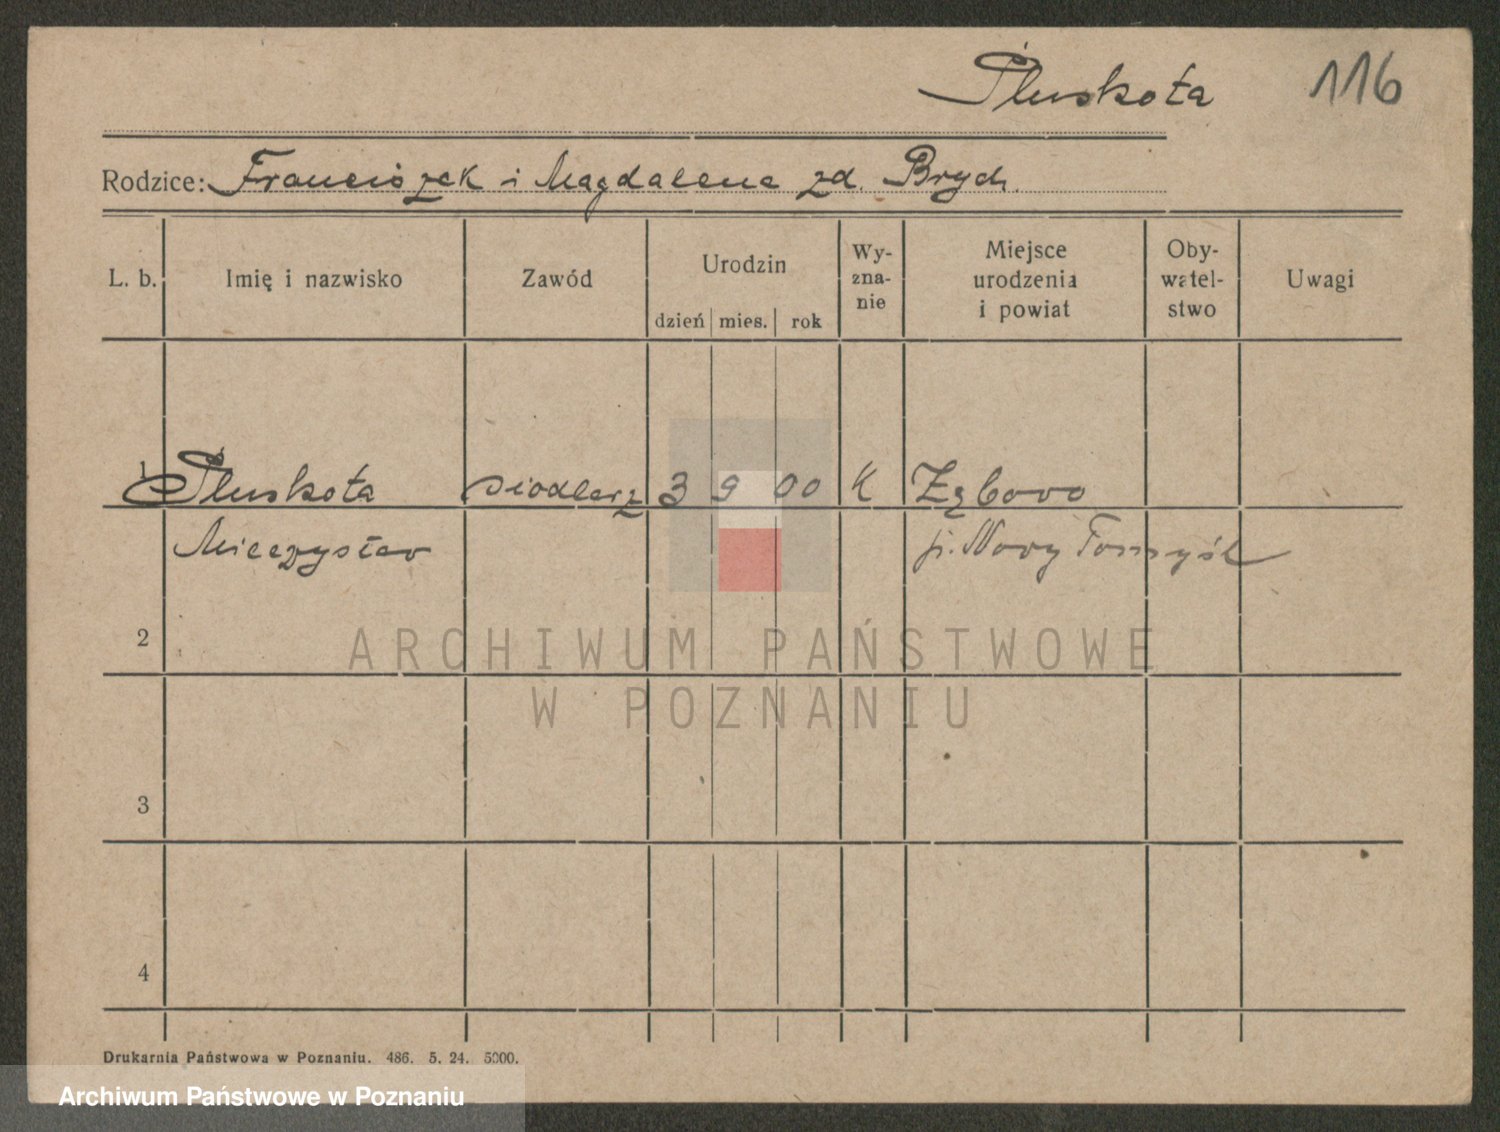 Pluskota 116
Rodzice: Franciszek i Magdalena zd. Brych.
L. b. Imię i nazwisko Zawód Urodzin dzień mies. rok Wy-zna-nie Miejsce urodzenia i powiat Oby-watel-stwo Uwagi
1 Pluskota siodlarz 3 9 00 K Zębowo
Mieczysław p. Nowy Tomyśl
2
ARCHIWUM PAŃSTWOWE
W POZNANIU
3
4
Drukarnia Państwowa w Poznaniu. 486. 5. 24. 5000.
Archiwum Państwowe w Poznaniu